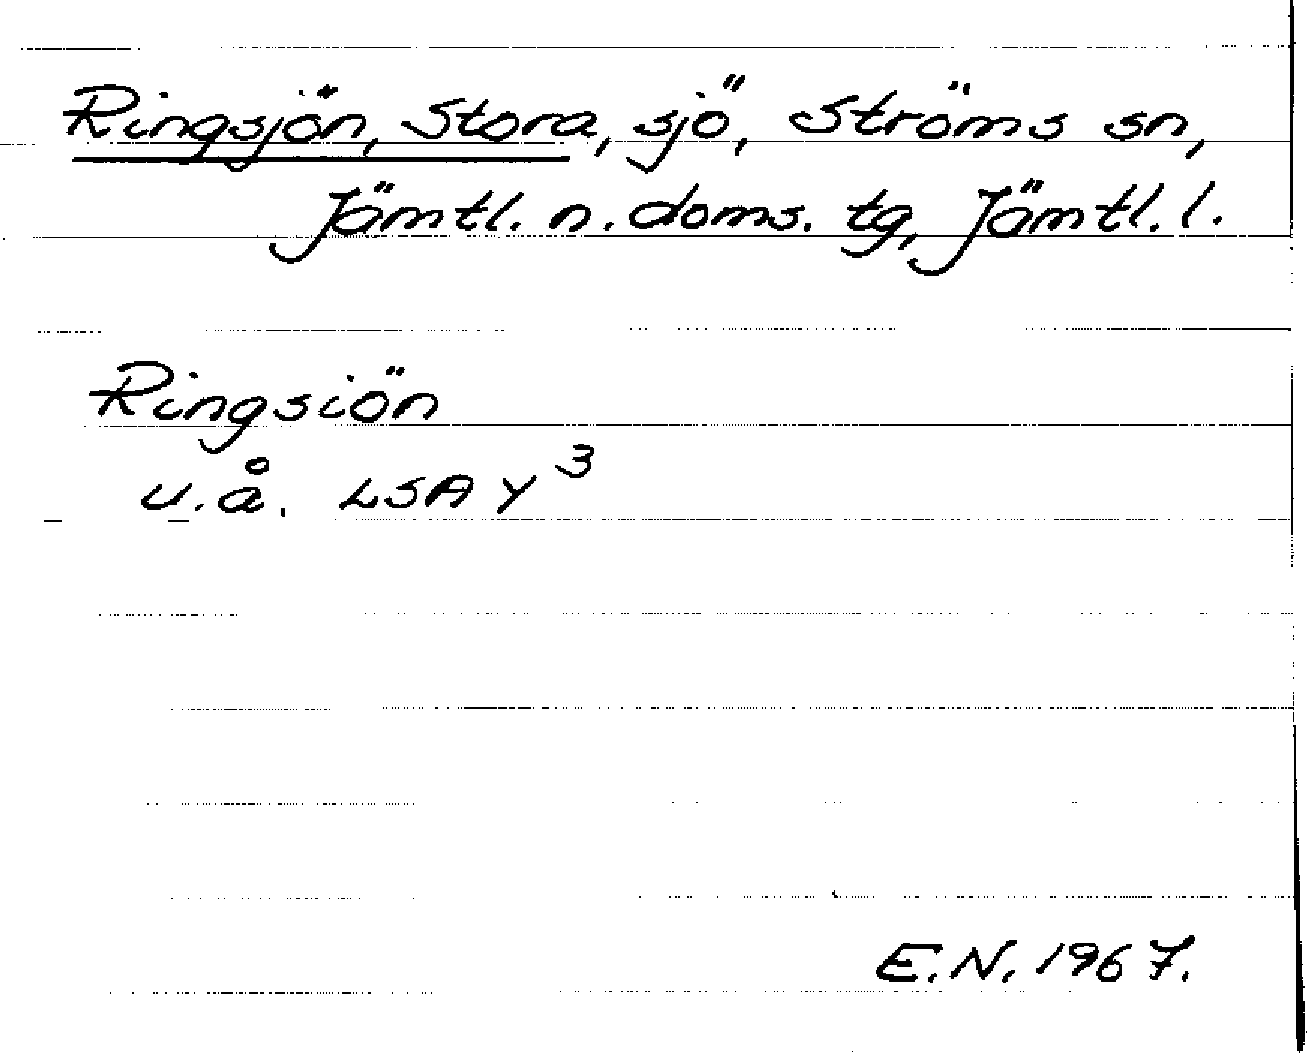 Ringsjön, Stora, sjö, Ströms sn,
Jämtl. n. doms. tg, Jämtl. l.
Ringsiön
u.å. LSA Y³
E.N. 1967.